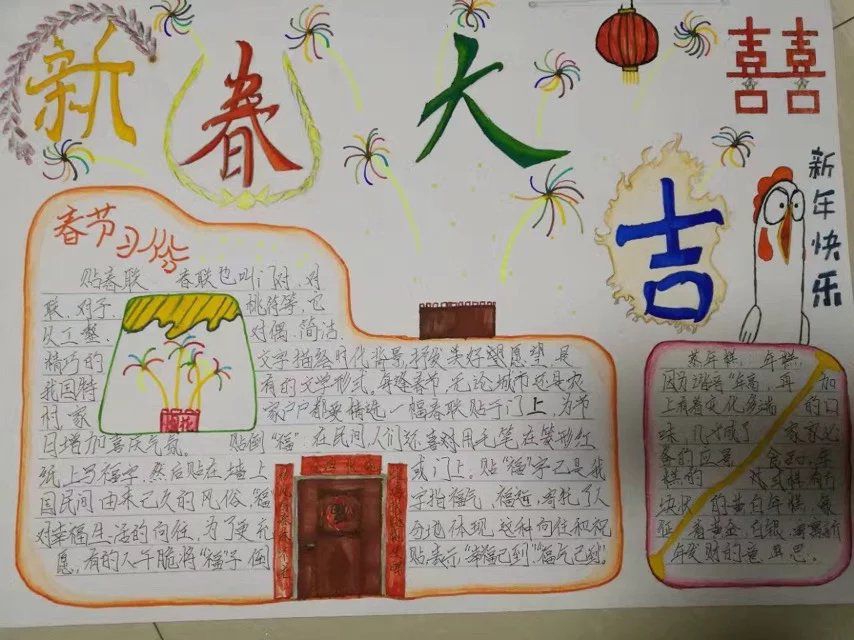 新春大吉
囍
新年快乐
春节习俗
贴春联 春联也叫门对、对
联、对子、桃符等,它
以工整、对偶、简洁、
精巧的文字描绘时代背景,抒发美好愿望,是
我国特有的文学形式。每逢春节,无论城市还是农
村,家家户户都要精选一幅春联贴于门上,为节
日增加喜庆气氛。 贴倒“福”在民间人们还喜
纸上写福字,然后贴在墙上或门上。贴“福”字已是我
国民间由来已久的风俗,“福”字指福气、福
对幸福生活的向往,为了更充分地体现这种向往和祝
愿,有的人干脆将“福”字倒贴,表示“幸福已到”“福气已到”。
蒸年糕 年糕
因为谐音“年高”,再加
上有着变化多端的口
味,几
备的应景食品,年
糕的式样有
块状的黄白年糕,象
征着黄金、白银,
年发财的意思。